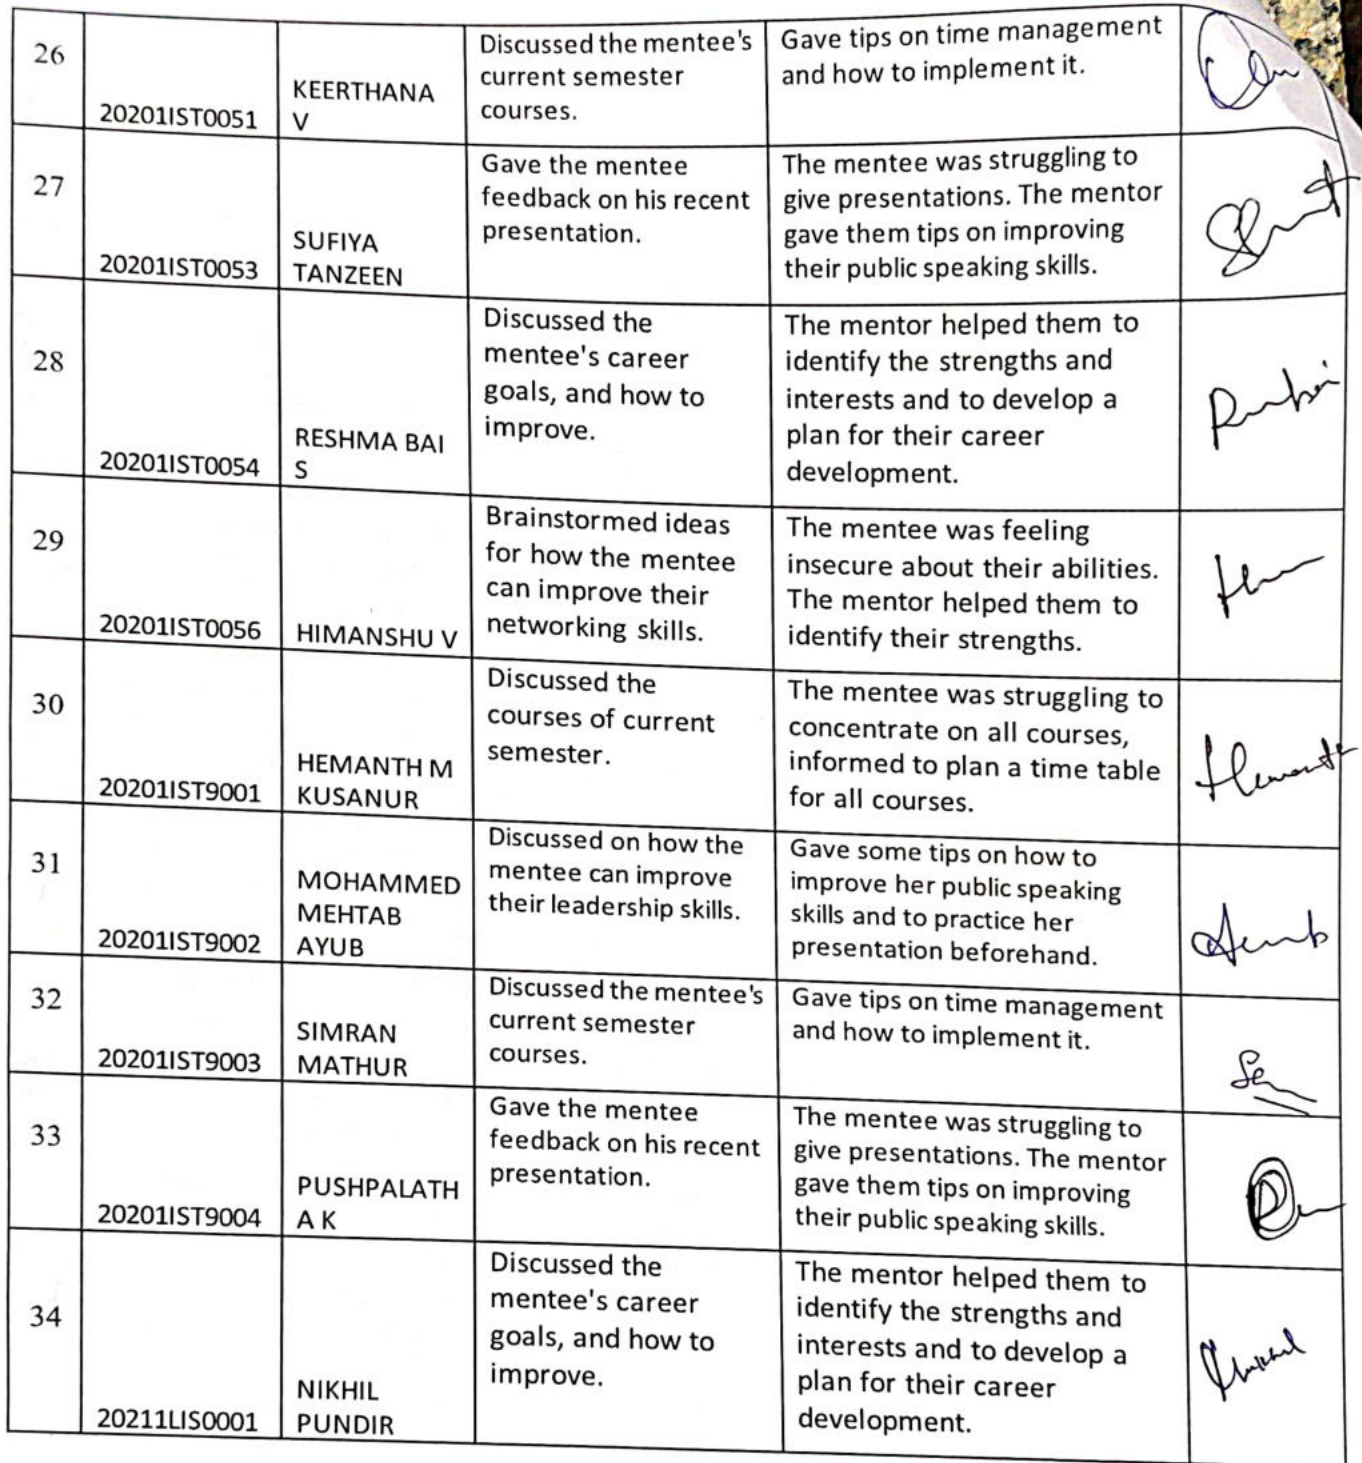 26
20201IST0051
KEERTHANA
V
Discussed the mentee's
current semester
courses.
Gave tips on time management
and how to implement it.
27
20201IST0053
SUFIYA
TANZEEN
Gave the mentee
feedback on his recent
presentation.
The mentee was struggling to
give presentations. The mentor
gave them tips on improving
their public speaking skills.
28
20201IST0054
RESHMA BAI
S
Discussed the
mentee's career
goals, and how to
improve.
The mentor helped them to
identify the strengths and
interests and to develop a
plan for their career
development.
29
20201IST0056
HIMANSHU V
Brainstormed ideas
for how the mentee
can improve their
networking skills.
The mentee was feeling
insecure about their abilities.
The mentor helped them to
identify their strengths.
30
20201IST9001
HEMANTH M
KUSANUR
Discussed the
courses of current
semester.
The mentee was struggling to
concentrate on all courses,
informed to plan a time table
for all courses.
Hemanth
31
20201IST9002
MOHAMMED
MEHTAB
AYUB
Discussed on how the
mentee can improve
their leadership skills.
Gave some tips on how to
improve her public speaking
skills and to practice her
presentation beforehand.
32
20201IST9003
SIMRAN
MATHUR
Discussed the mentee's
current semester
courses.
Gave tips on time management
and how to implement it.
33
20201IST9004
PUSHPALATH
A K
Gave the mentee
feedback on his recent
presentation.
The mentee was struggling to
give presentations. The mentor
gave them tips on improving
their public speaking skills.
34
20211LIS0001
NIKHIL
PUNDIR
Discussed the
mentee's career
goals, and how to
improve.
The mentor helped them to
identify the strengths and
interests and to develop a
plan for their career
development.